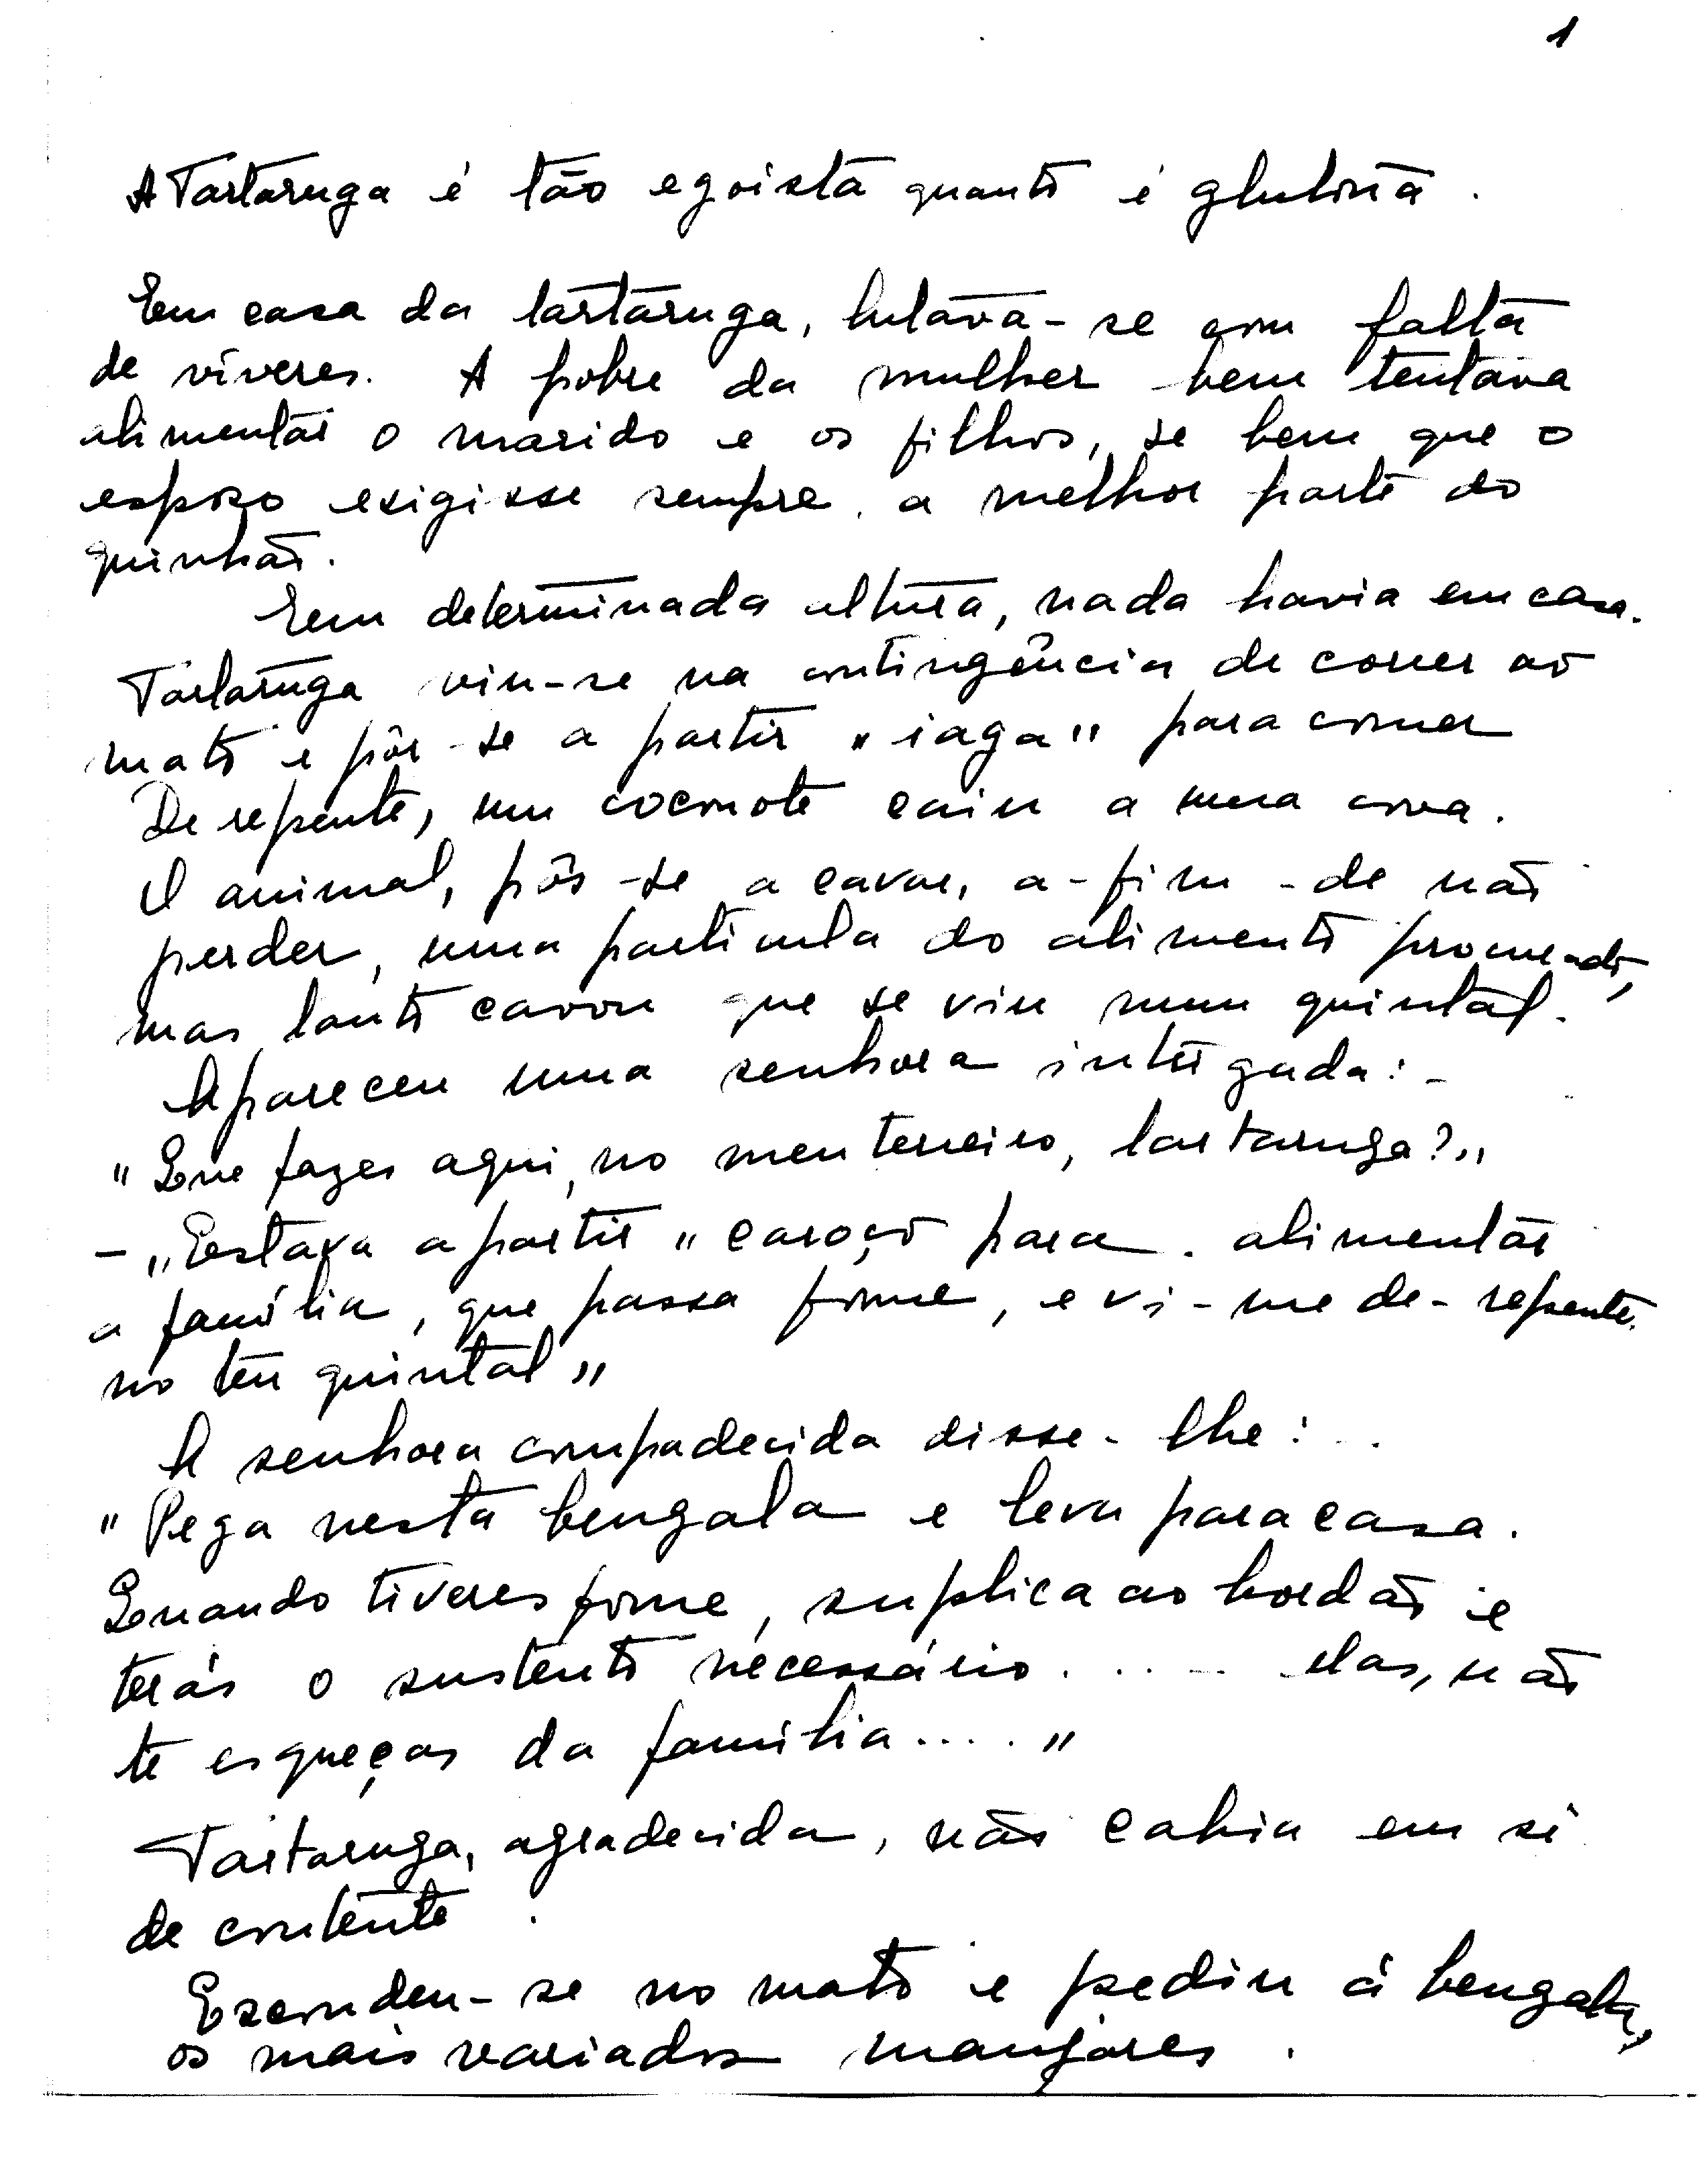 1
A Tartaruga é tão egoista quanto é glutona.
Em casa da tartaruga, lutava-se com falta
de víveres. A pobre da mulher bem tentava
alimentar o marido e os filhos, se bem que o
esposo exigisse sempre a melhor parte do
quinhão.
Em determinada altura, nada havia em casa.
Tartaruga viu-se na contingência de correr ao
mato e pôr-se a partir "iaga" para comer
De repente, um coconote caiu a uma cova.
O animal, pôs-se a cavar, a-fim-de não
perder, uma particula do alimento procurado,
mas tanto cavou que se viu num quintal.
Apareceu uma senhora intrigada:-
"Que fazes aqui, no meu terreiro, tartaruga?"
- "Estava a partir "caroço para alimentar
a família, que passa fome, e vi-me de-repente
no teu quintal"
A senhora compadecida disse-lhe:..
"Pega nesta bengala e leva para casa.
Quando tiveres fome, suplica ao bordão e
terás o sustento necessário..... Mas, não
te esqueças da família...."
Tartaruga, agradecida, não cabia em si
de contente.
Escondeu-se no mato e pediu á bengala,
os mais variados manjares.